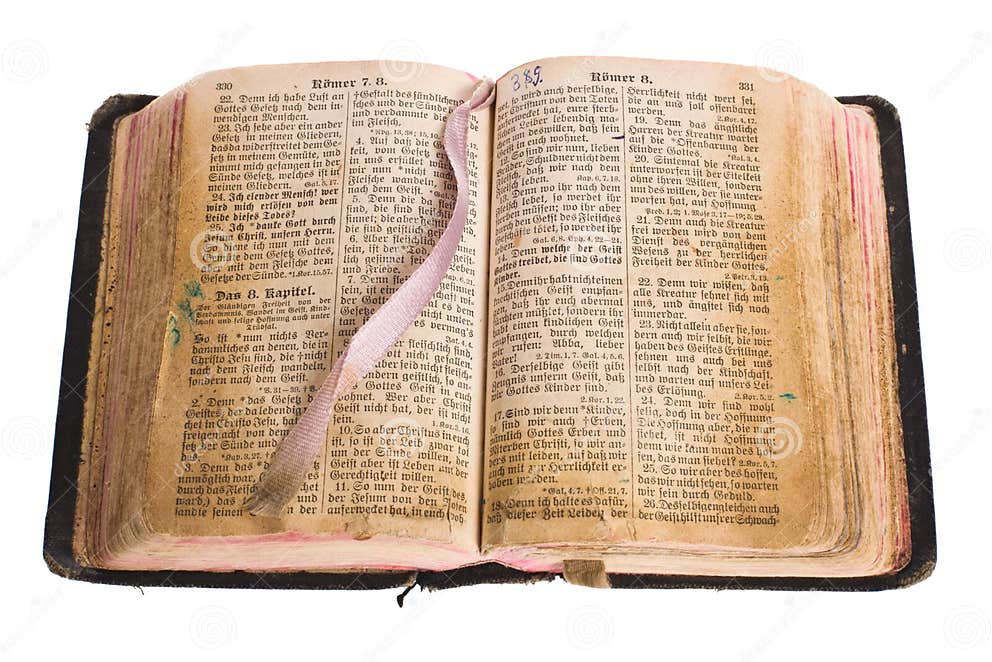 330
Römer 7. 8.
22. Denn ich habe Lust an
Gottes Gesetz nach dem in-
wendigen Menschen.
23. Ich sehe aber ein ander
Gesetz in meinen Gliedern,
das da widerstreitet dem Ge-
setz in meinem Gemüte, und
nimmt mich gefangen in der
Sünde Gesetz, welches ist in
meinen Gliedern. Gal. 5, 17.
24. Ich elender Mensch! wer
wird mich erlösen von dem
Leibe dieses Todes?
25. Ich *danke Gott durch
Jesum Christ, unsern Herrn.
So diene ich nun mit dem
Gemüte dem Gesetz Gottes,
aber mit dem Fleische dem
Gesetze der Sünde. *1. Kor. 15, 57.
Das 8. Kapitel.
Der Gläubigen Freiheit von der
Verdammnis, Wandel im Geist, Kind-
schaft und selige Hoffnung auch unter
Trübsal.
So ist *nun nichts Ver-
dammliches an denen, die in
Christo Jesu sind, die †nicht
nach dem Fleisch wandeln,
sondern nach dem Geist.
2. Denn *das Gesetz
Geistes, der da lebendig
in Christo Jesu, hat
freigemacht von dem
der Sünde und
3. Denn das
unmöglich war,
durch das Fleisch
ward,) das
sandte seinen
†Gestalt des sündlichen
sches und der Sünde
und verdammte die
Fleisch
4. Auf daß
keit, vom Gesetz
in uns erfüllet
wir nun *nicht
Fleische wandeln,
nach dem Geist.
5. Denn die da
sind, die sind fleischlich
sinnet; die aber
die sind geistlich
6. Aber fleischlich
sein, ist der *Tod
lich gesinnet sein
und Friede.
7. Denn
sein, ist eine
der Gott
tan ist
vermag's
fleischlich sind,
ott nicht gefallen.
er seid nicht fleischlich,
ondern geistlich, so an-
Gottes Geist in euch
wohnet. Wer aber Christi
Geist nicht hat, der ist nicht
sein.
10. So aber Christus in euch
ist, so ist der Leib zwar tot
um der Sünde willen, der
Geist aber ist Leben um der
Gerechtigkeit willen.
11. So nun der Geist des,
der Jesum von den Toten
auferwecket hat, in euch woh-
389.
Römer 8.
331
net, so wird auch derselbige,
der Christum von den Toten
auferwecket hat, eure sterb-
lichen Leiber lebendig ma-
chen um deswillen, daß sein
Geist in euch wohnet.
12. So sind wir nun, lieben
Brüder, Schuldner nicht dem
Fleisch, daß wir nach dem
Fleisch leben. Röm. 6, 7. 18.
13. Denn wo ihr nach dem
Fleisch lebet, so werdet ihr
sterben müssen; wo ihr aber
durch den Geist des Fleisches
Geschäfte tötet, so werdet ihr
leben. Gal. 6, 8. Eph. 4, 22–24.
14. Denn welche der Geist
Gottes treibet, die sind Gottes
Kinder.
15. Denn ihr habt nicht einen
knechtischen Geist empfan-
gen, daß ihr euch abermal
fürchten müßtet, sondern ihr
habt einen kindlichen Geist
empfangen, durch welchen
wir rufen: Abba, lieber
Vater! 2. Tim. 1, 7. Gal. 4, 5. 6.
16. Derselbige Geist gibt
Zeugnis unserm Geist, daß
wir Gottes Kinder sind.
2. Kor. 1, 22.
17. Sind wir denn *Kinder,
so sind wir auch †Erben,
nämlich Gottes Erben und
Miterben Christi, so wir an-
ders mit leiden, auf daß wir
auch mit zur Herrlichkeit er-
haben werden.
*Gal. 4, 7. †Off. 21, 7.
18. Denn ich halte es dafür,
daß dieser Zeit Leiden der
Herrlichkeit nicht wert sei,
die an uns soll offenbaret
werden. 2. Kor. 4, 17.
19. Denn das ängstliche
Harren der Kreatur wartet
auf die *Offenbarung der
Kinder Gottes. *Kol. 3, 4.
20. Sintemal die Kreatur
unterworfen ist der Eitelkeit
ohne ihren Willen, sondern
um des willen, der sie unter-
worfen hat, auf Hoffnung
Pred. 1, 2; 1. Mose 3, 17–19; 5, 29.
21. Denn auch die Kreatur
frei werden wird von dem
Dienst des vergänglichen
Wesens zu der herrlichen
Freiheit der Kinder Gottes.
2. Petr. 3, 13.
22. Denn wir wissen, daß
alle Kreatur sehnet sich mit
uns, und ängstet sich noch
immerdar.
23. Nicht allein aber sie, son-
dern auch wir selbst, die wir
haben des Geistes Erstlinge,
sehnen uns auch bei uns
selbst nach der Kindschaft,
und warten auf unsers Lei-
bes Erlösung. 2. Kor. 5, 2.
24. Denn wir sind wohl
selig, doch in der Hoffnung.
Die Hoffnung aber, die man
siehet, ist nicht Hoffnung;
denn wie kann man des hof-
fen, das man siehet? 2. Kor. 5, 7.
25. So wir aber des hoffen,
das wir nicht sehen, so warten
wir sein durch Geduld.
26. Desselbigengleichen auch
der Geist hilft unsrer Schwach-